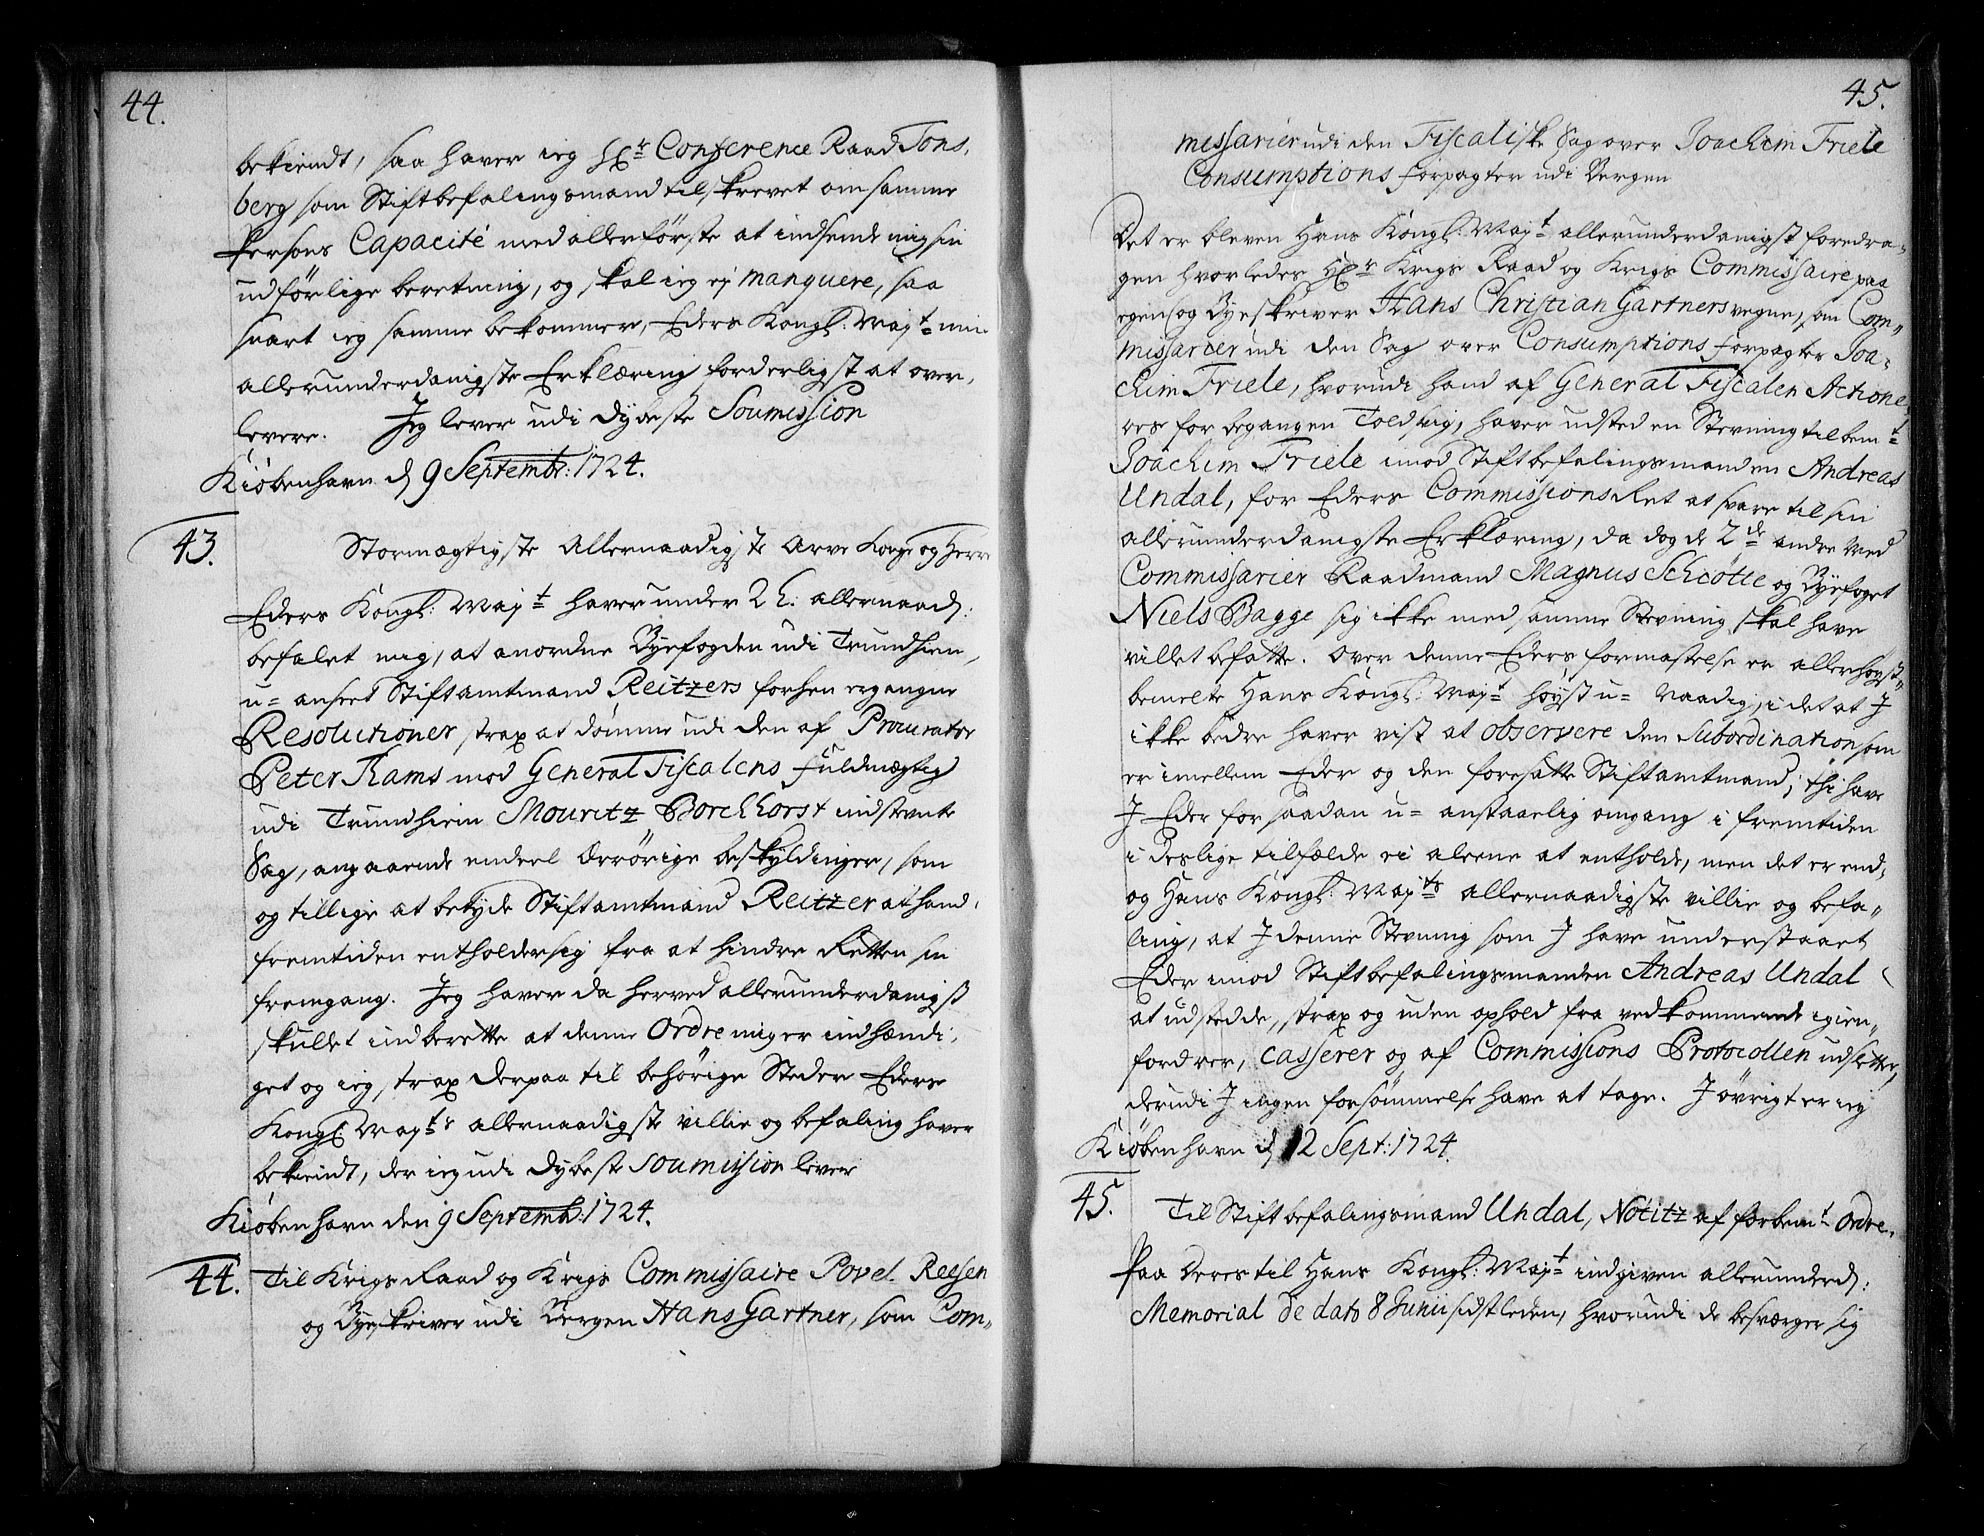 44.
bekiendt, saa haver ieg Hr Conference Raad Tons,
berg som Stiftbefalingsmand tilskrevet om samme
Persons Capacité med allerförste at indsende mig sin
udförlige beretning, og skal ieg ej manquere, saa
snart ieg samme bekommer, Eders Kongl: Mayt min
allerunderdanigste Erklæring forderligst at over,
levere. Jeg lever udi dybeste Soumission
Kiöbenhavn d 9 Septembr: 1724.
43. Stormægtigste Allernaadigste Arve Konge og Herre
Eders Kongl: Mayt haver under 2 h. allernaad:
befalet mig, at anordne Byefogden udi Trundhiem,
u= anseet Stiftamtmand Reitzers forhen ergangne
Resolutioner, strax at dömme udi den af Procurator
Peter Rams mod General Fiscalens Fuldmægtig
udi Trundhiem Mouritz Borchhorst indstevnte
Sag, angaaende endeel Ærrörige beskyldinger, som
og tillige at betyde Stiftamtmand Reitzer at hand,
fremtiden entholder sig fra at hindre Retten sin
fremgang. Jeg haver da herved allerunderdanigst
skullet indberette at denne Ordre mig er indhændi,
get og ieg, strax derpaa til behörige Steder Eders
Kongl Mayts allernaadigste villie og befaling haver
bekiendt, der ieg udi dybeste soumission lever
Kiöbenhavn den 9 Septemb: 1724.
44. Til Krigs Raad og Krigs Commissaire Povel Reesen
og Byeskriver udi Bergen Hans Gartner, som Com„
45.
missarier udi den Fiscaliske Sag over Joachim Friele
Consumptions forpagter udi Bergen
Det er bleven Hans Kongl: Mayt allerunderdanigst foredra„
gen hvorledes Hr Krigs Raad og Krigs Commissaire paa
egen og Byeskriver Hans Christian Gartners vegne, som Com„
missarier udi den Sag over Consumptions forpagter Joa„
chim Friele, hvorudi hand af General Fiscalen Actione„
res for begangen Toldsvig, haver udsted en Stevning til bemt
Joachim Friele imod Stiftbefalingsmanden Andreas
Undal, for Eders Commissions Ret at svare til sin
allerunderdanigste Erklæring, da dog de 2de andre Med
Commissarier Raadmand Magnus Schiötte og Byefoget
Niels Bagge sig ikke med samme Stevning skal have
villet befatte. Over denne Eders formastelse er allerhöyst„
bemelte Hans Kongl: Mayt höyst u= Naadig, i det at J
ikke bedre haver vist at observere den Subordination som
er imellem Eder og den foresatte Stiftamtmand; thi have
J Eder for saadan u= anstaaelig omgang i fremtiden
i deslige tilfælde ei aleene at entholde, men det er end,
og Hans Kongl: Mayts allernaadigste villie og befa„
ling, at J denne Stevning som J have understaaet
Eder imod Stiftbefalingsmanden Andreas Undal
at udstedde, strax og uden ophold fra vedkommende igien„
fordrer, casserer og af Commissions Protocollen udsletter,
derudi J ingen forsömmelse have at tage. J övrigt er ieg
Kiöbenhavn d 12 Sept: 1724.
45. Til Stiftbefalingsmand Undal, Notitz af forbemt Ordre.
Paa Deres til Hans Kongl: Mayt indgiven allerunderd:
Memorial de dato 8 Junii sidstleden, hvorudi de besværger sig